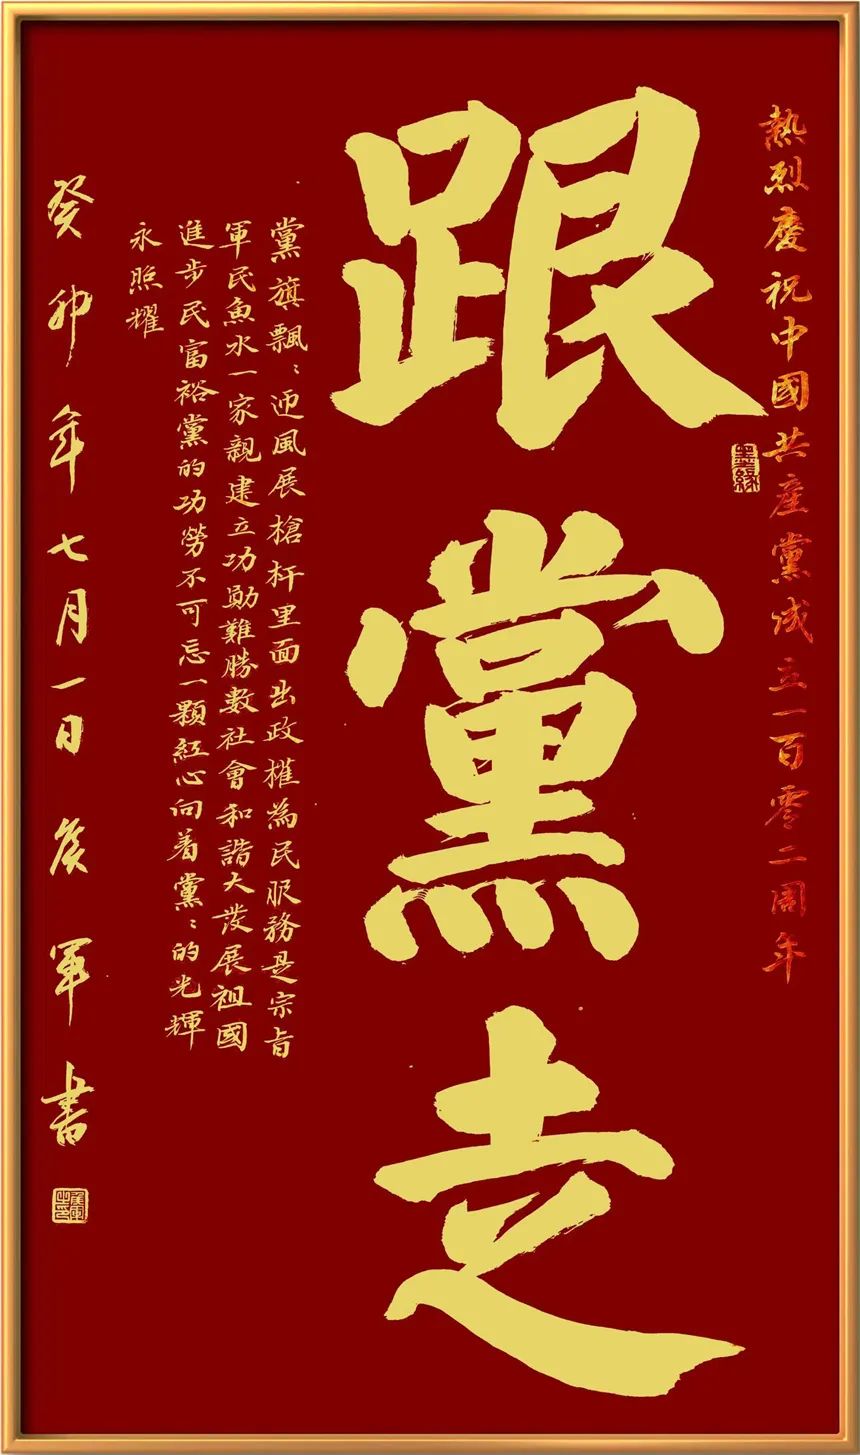 熱烈慶祝中國共產黨成立一百零二周年
跟黨走
墨緣
黨旗飄〻迎風展槍杆里面出政權為民服務是宗旨
軍民魚水一家親建立功勛難勝數社會和諧大发展祖國
進步民富裕黨的功勞不可忘一顆紅心向着黨〻的光輝
永照耀
癸卯年七月一日侯軍書